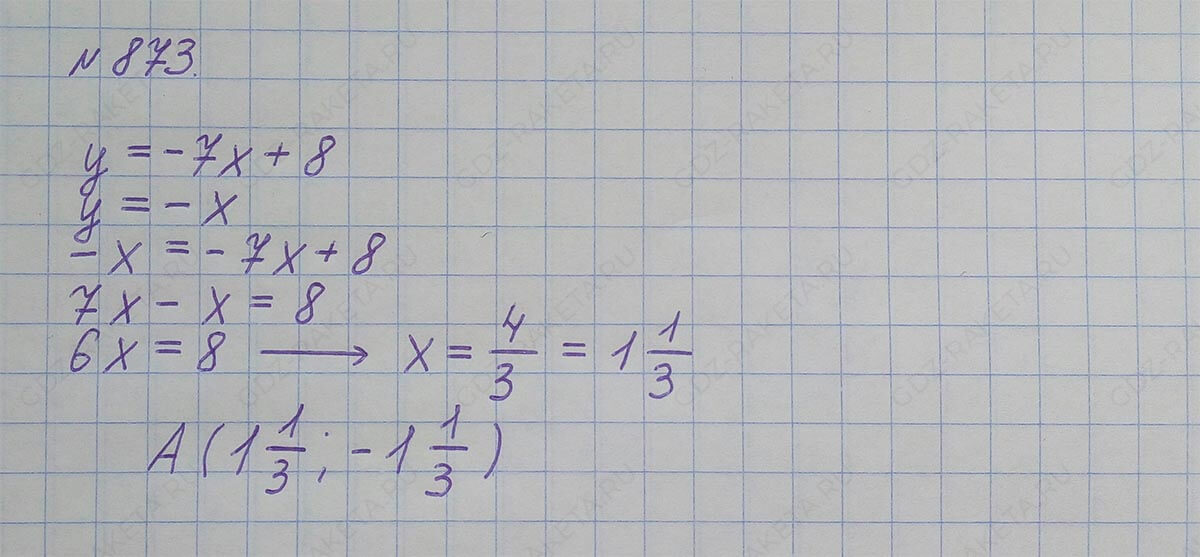 № 873.
y = -7x + 8
y = - x
- x = - 7x + 8
7x - x = 8
6x = 8 ⟶ x = 4/3 = 1 1/3
A (1 1/3; -1 1/3)
GDZ-RAKETA.RU